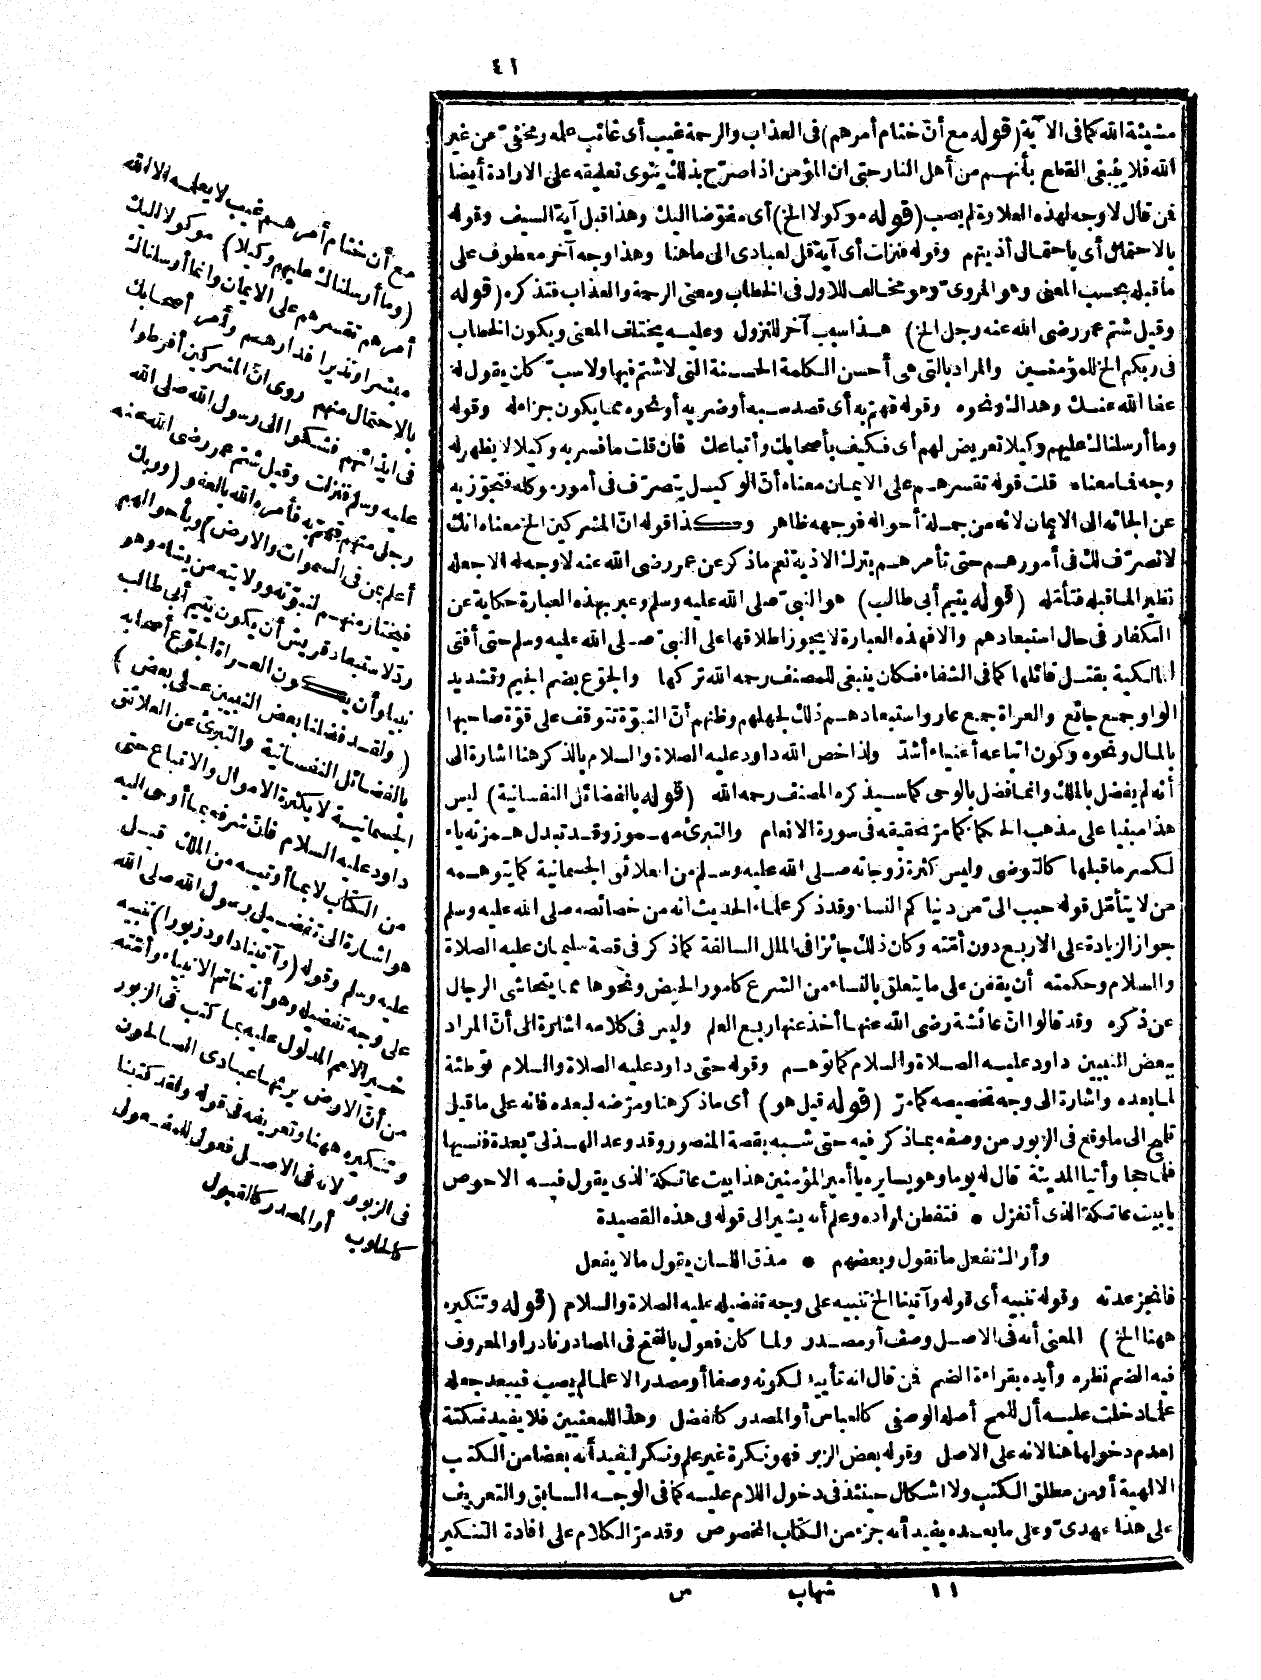 ٤١
مشيئة الله كما فى الآية (قوله مع أنّ ختام أمرهم) فى العذاب والرحمة غيب أى غائب علمه ومخفىّ عن غير
الله فلا ينبغى القطع بأنهم من أهل النار حتى ان المؤمن اذا صرّح بذلك ينوى تعليقه على الارادة أيضا
فمن قال لا وجه لهذه العلاوة لم يصب (قوله موكولا الخ) أى مفوّضا اليك وهذا قبل آية السيف وقوله
بالاحتمال أى باحتمال أذيتهم وقوله فنزلت أى آية قل لعبادى الى ماهنا وهذا وجه آخر معطوف على
ما قبله بحسب المعنى وهو المروىّ وهو مخالف للاول فى الخطاب ومعنى الرحمة والعذاب فتذكره (قوله
وقيل شتم عمر رضى الله عنه رجل الخ) هذا سبب آخر للنزول وعليه يختلف المعنى ويكون الخطاب
فى ربكم الخ للمؤمنين والمراد بالتى هى أحسن الكلمة الحسنة التى لا شتم فيها ولا سبّ كان يقول له
عفا الله عنك وهداك ونحوه وقوله فهمّ به أى قصد سبه أو ضربه أو نحوه مما يكون جزاء له وقوله
وما أرسلناك عليهم وكيلا تعريض لهم أى فكيف بأصحابك وأتباعك فان قلت ما فسر به وكيلا لا يظهر له
وجه فما معناه قلت قوله تقسرهم على الايمان معناه أنّ الوكيل يتصرّف فى أمور موكله فتجوّز به
عن الجائه الى الايمان لانه من جملة أحواله فوجهه ظاهر وكذا قوله انّ المشركين الخ معناه انك
لا تصرّف لك فى أمورهم حتى تأمرهم بترك الاذية نعم ما ذكر عن عمر رضى الله عنه لا وجه له الا جعله
نظير الما قبله فتأمله (قوله يتيم أبى طالب) هو النبىّ صلى الله عليه وسلم وعبر بهذه العبارة حكاية عن
الكفار فى حال استبعادهم والا فهذه العبارة لا يجوز اطلاقها على النبىّ صلى الله عليه وسلم حتى أفتى
المالكية بقتل قائلها كما فى الشفاء فكان ينبغى للمصنف رحمه الله تركها والجوّع بضم الجيم وتشديد
الواو جمع جائع والعراة جمع عار واستبعادهم ذلك لجهلهم وظنهم أنّ النبوّة تتوقف على قوّة صاحبها
بالمال ونحوه وكون اتباعه أغنياء أشدّ ولذا خص الله داود عليه الصلاة والسلام بالذكر هنا اشارة الى
أنه لم يفضل بالملك وانما فضل بالوحى كما سيذكره المصنف رحمه الله (قوله بالفضائل النفسانية) ليس
هذا مبنيا على مذهب الحكماء كما مرّ تحقيقه فى سورة الانعام والتبرئ مهموز وقد تبدل همزته ياء
لكسر ما قبلها كالتوضى وليس كثرة زوجاته صلى الله عليه وسلم من العلائق الجسمانية كما يتوهمه
من لا يتأمّل قوله حبب الىّ من دنياكم النساء وقد ذكر علماء الحديث انه من خصائصه صلى الله عليه وسلم
جواز الزيادة على الاربع دون أمّته وكان ذلك جائزا فى الملل السالفة كما ذكر فى قصة سليمان عليه الصلاة
والسلام وحكمته أن يقفن على ما يتعلق بالنساء من الشرع كأمور الحيض ونحوها مما يتحاشى الرجال
عن ذكره وقد قالوا انّ عائشة رضى الله عنها أخذ عنها ربع العلم وليس فى كلامه اشارة الى أنّ المراد
ببعض النبيين داود عليه الصلاة والسلام كما توهم وقوله حتى داود عليه الصلاة والسلام توطئة
لما بعده واشارة الى وجه تخصيصه كما مرّ (قوله قيل هو) أى ما ذكر هنا ومرّضه لبعده فانه على ما قيل
تلميح الى ما وقع فى الزبور من وصفه بما ذكر فيه حتى شبه بقصة المنصور وقد وعد الهذلىّ بعدة فنسيها
فلما حجا وأتيا المدينة قال له يوما وهو يسايره يا أمير المؤمنين هذا بيت عاتكة الذى يقول فيه الاحوص
يا بيت عاتكة الذى أتغزل • فتفطن لمراده وعلم أنه يشير الى قوله فى هذه القصيدة
وأراك تفعل ما تقول وبعضهم • مذق اللسان يقول مالا يفعل
فأنجز عدته وقوله تنبيه أى قوله وآتينا الخ تنبيه على وجه تفضيله عليه الصلاة والسلام (قوله وتنكيره
ههنا الخ) المعنى أنه فى الاصل وصف أو مصدر ولما كان فعول بالفتح فى المصادر نادرا والمعروف
فيه الضم نظره وأيده بقراءة الضم فمن قال انه تأييد لكونه وصفا أو مصدرا لا علما لم يصب فيبعد جعله
علما دخلت عليه أل للمح أصله الوصفى كالعباس أو المصدر كالفضل وهذا للمعنيين فلا يفيد نكتة
لعدم دخولها هنا لانه على الاصل وقوله بعض الزبر فهو نكرة غير علم ونكر ليفيد أنه بعضا من الكتب
الالهية أو من مطلق الكتب ولا اشكال حينئذ فى دخول اللام عليه كما فى الوجه السابق والتعريف
على هذا عهدىّ وعلى ما بعده يفيد أنه جزء من الكتاب المخصوص وقد مرّ الكلام على افادة التنكير
مع أن ختام أمرهم غيب لا يعلمه الا الله
(وما أرسلناك عليهم وكيلا) موكولا اليك
أمرهم تقسرهم على الايمان وانما أرسلناك
مبشرا ونذيرا فدارهم وأمر أصحابك
بالاحتمال منهم روى انّ المشركين أفرطوا
فى ايذائهم فشكوا الى رسول الله صلى الله
عليه وسلم فنزلت وقيل شتم عمر رضى الله عنه
رجل منهم فهمّ به فأمره الله بالعفو (وربك
أعلم بمن فى السموات والارض) وبأحوالهم
فيختار منهم لنبوّته وولايته من يشاء وهو
ردّ لاستبعاد قريش أن يكون يتيم أبى طالب
نبيا وأن يكون العراة الجوّع أصحابه
(ولقد فضلنا بعض النبيين على بعض)
بالفضائل النفسانية والتبرئ عن العلائق
الجسمانية لا بكثرة الاموال والاتباع حتى
داود عليه السلام فانّ شرفه بما أوحى اليه
من الكتاب لا بما أوتيه من الملك قيل
هو اشارة الى تفضيل رسول الله صلى الله
عليه وسلم وقوله (وآتينا داود زبورا) تنبيه
على وجه تفضيله وهو أنه خاتم الانبياء وأمّته
خير الامم المدلول عليه بما كتب فى الزبور
من أنّ الارض يرثها عبادى الصالحون
وتنكيره ههنا وتعريفه فى قوله ولقد كتبنا
فى الزبور لانه فى الاصل فعول للمفعول
كالحلوب أو المصدر كالقبول
١١ شهاب س